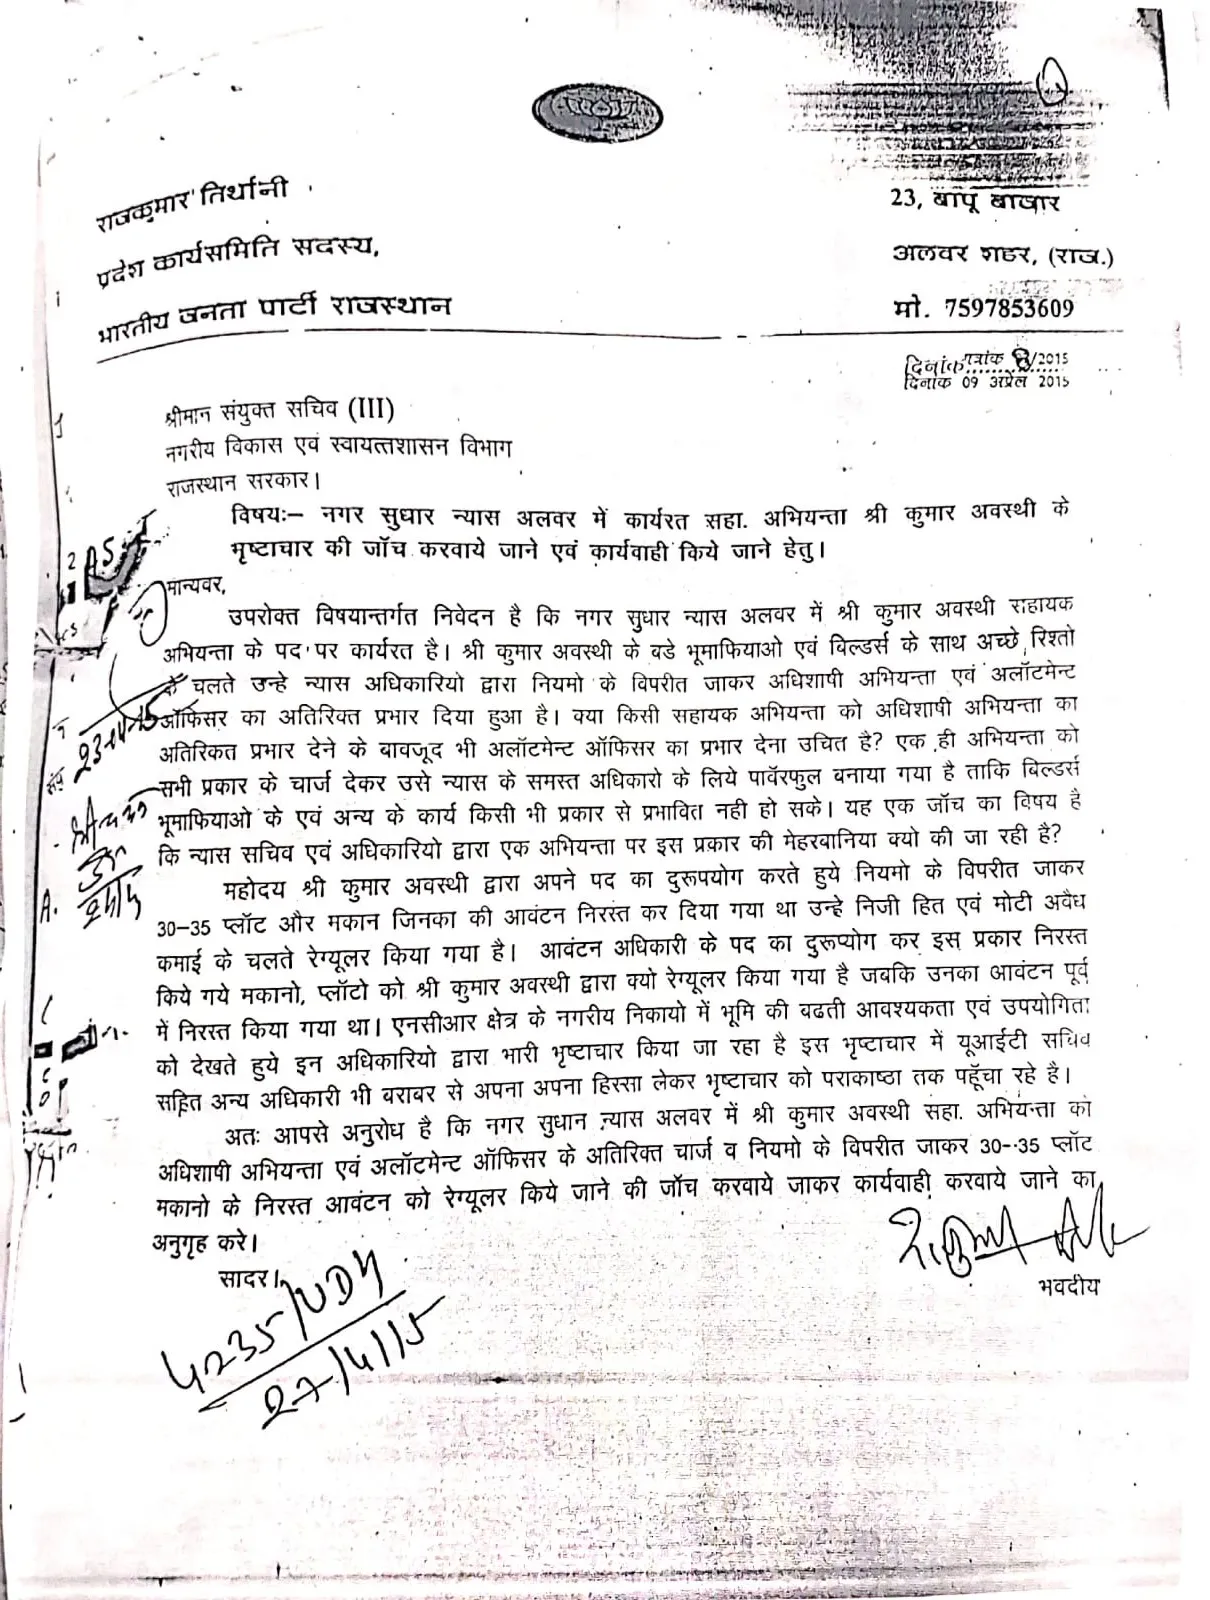 राजकुमार तिर्थानी
प्रदेश कार्यसमिति सदस्य,
भारतीय जनता पार्टी राजस्थान
23, बापू बाजार
अलवर शहर, (राज.)
मो. 7597853609
दिनांक पत्रांक /2015
दिनांक 09 अप्रेल 2015
श्रीमान संयुक्त सचिव (III)
नगरीय विकास एवं स्वायत्तशासन विभाग
राजस्थान सरकार।
विषयः– नगर सुधार न्यास अलवर में कार्यरत सहा. अभियन्ता श्री कुमार अवस्थी के
भृष्टाचार की जॉच करवाये जाने एवं कार्यवाही किये जाने हेतु।
मान्यवर,
उपरोक्त विषयान्तर्गत निवेदन है कि नगर सुधार न्यास अलवर में श्री कुमार अवस्थी सहायक
अभियन्ता के पद पर कार्यरत है। श्री कुमार अवस्थी के बडे भूमाफियाओ एवं बिल्डर्स के साथ अच्छे रिश्तो
के चलते उन्हे न्यास अधिकारियो द्वारा नियमो के विपरीत जाकर अधिशाषी अभियन्ता एवं अलॉटमेन्ट
ऑफिसर का अतिरिक्त प्रभार दिया हुआ है। क्या किसी सहायक अभियन्ता को अधिशाषी अभियन्ता का
अतिरिकत प्रभार देने के बावजूद भी अलॉटमेन्ट ऑफिसर का प्रभार देना उचित है? एक ही अभियन्ता को
सभी प्रकार के चार्ज देकर उसे न्यास के समस्त अधिकारो के लिये पावॅरफुल बनाया गया है ताकि बिल्डर्स
भूमाफियाओ के एवं अन्य के कार्य किसी भी प्रकार से प्रभावित नही हो सके। यह एक जॉच का विषय है
कि न्यास सचिव एवं अधिकारियो द्वारा एक अभियन्ता पर इस प्रकार की मेहरबानिया क्यो की जा रही है?
महोदय श्री कुमार अवस्थी द्वारा अपने पद का दुरूपयोग करते हुये नियमो के विपरीत जाकर
30–35 प्लॉट और मकान जिनका की आवंटन निरस्त कर दिया गया था उन्हे निजी हित एवं मोटी अवैध
कमाई के चलते रेग्यूलर किया गया है। आवंटन अधिकारी के पद का दुरूप्योग कर इस प्रकार निरस्त
किये गये मकानो, प्लॉटो को श्री कुमार अवस्थी द्वारा क्यो रेग्यूलर किया गया है जबकि उनका आवंटन पूर्व
में निरस्त किया गया था। एनसीआर क्षेत्र के नगरीय निकायो में भूमि की बढती आवश्यकता एवं उपयोगिता
को देखते हुये इन अधिकारियो द्वारा भारी भृष्टाचार किया जा रहा है इस भृष्टाचार में यूआईटी सचिव
सहित अन्य अधिकारी भी बराबर से अपना अपना हिस्सा लेकर भृष्टाचार को पराकाष्ठा तक पहूँचा रहे है।
अतः आपसे अनुरोध है कि नगर सुधान न्यास अलवर में श्री कुमार अवस्थी सहा. अभियन्ता को
अधिशाषी अभियन्ता एवं अलॉटमेन्ट ऑफिसर के अतिरिक्त चार्ज व नियमो के विपरीत जाकर 30–35 प्लॉट
मकानो के निरस्त आवंटन को रेग्यूलर किये जाने की जॉच करवाये जाकर कार्यवाही करवाये जाने का
अनुगृह करे।
सादर।
भवदीय
4235/UDH
27/4/15
23-4-15